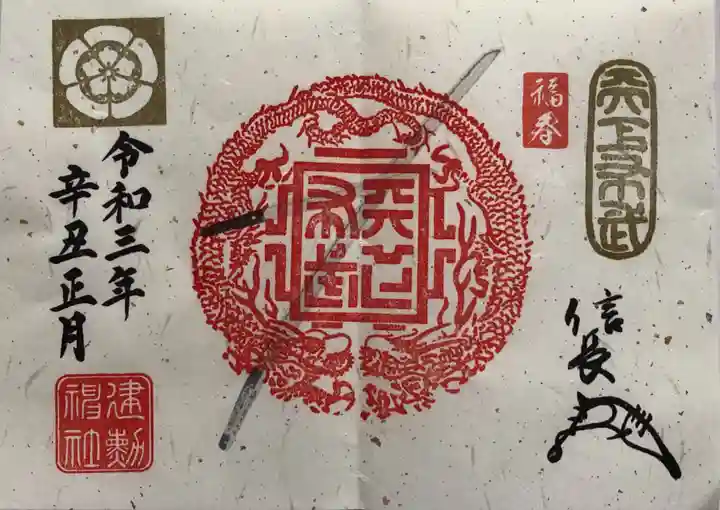 天下布武
福春
信長
天下布武
令和三年
辛丑正月
建勲
神社